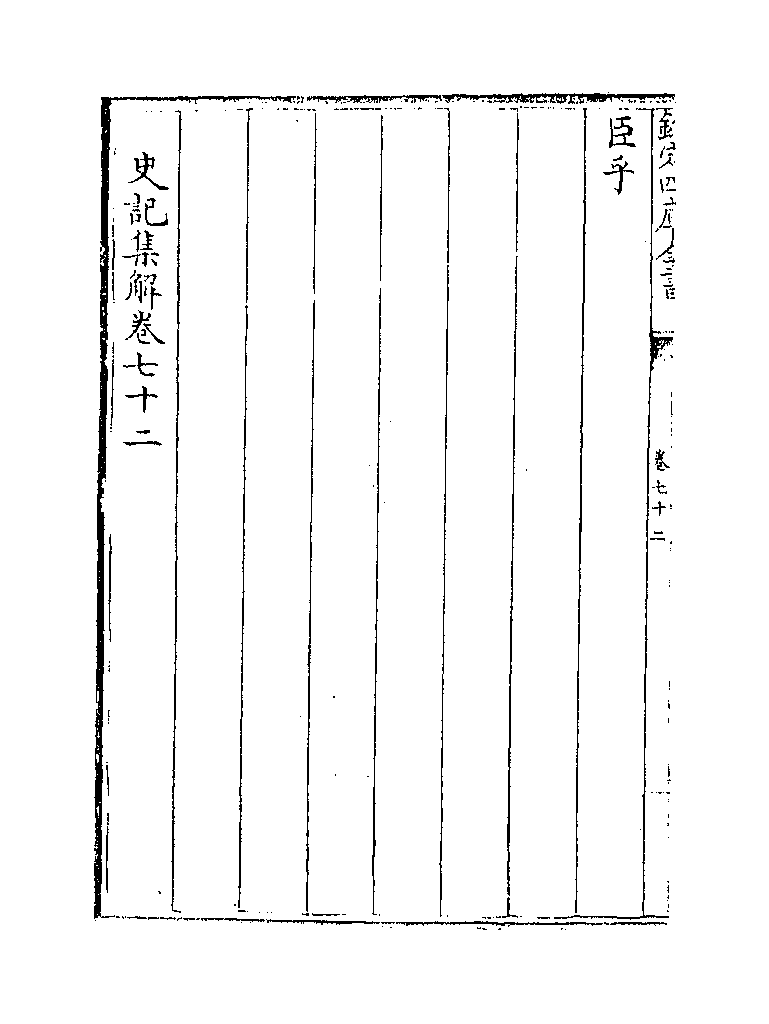 欽定四庫全書
卷七十二
臣乎
史記集解卷七十二